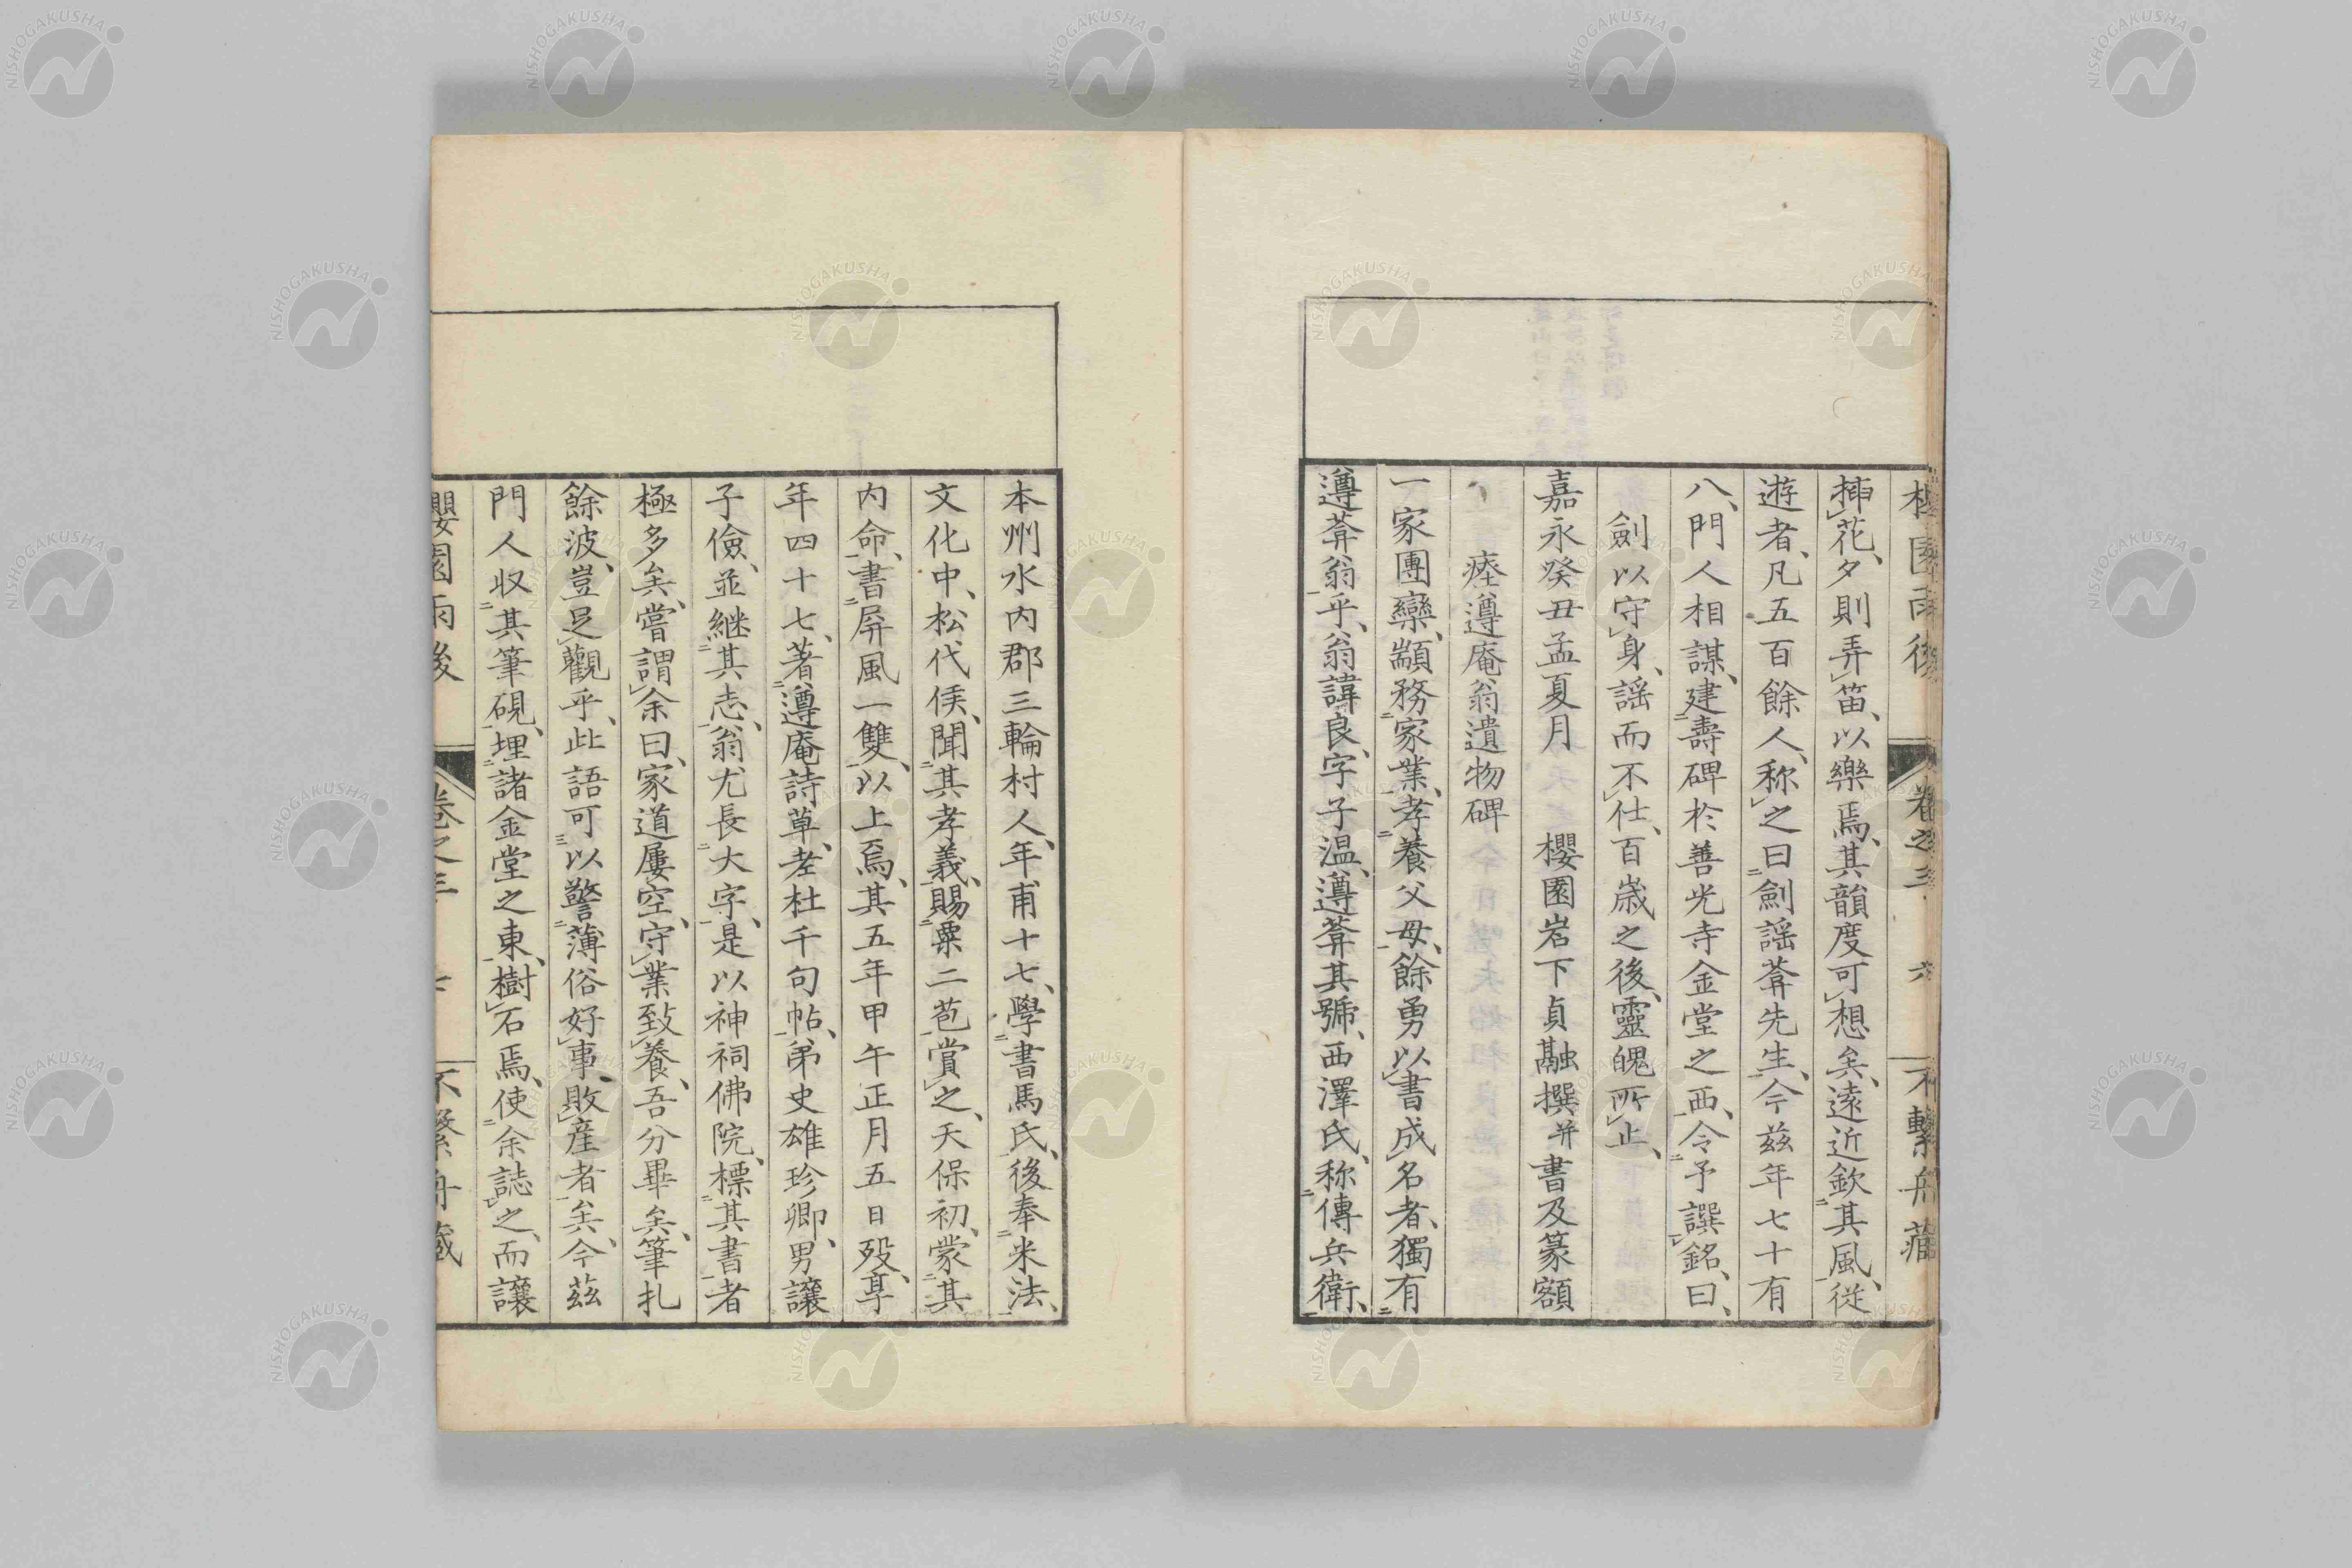 櫻園雨後 卷之三 六 不繫舟藏
挿花、夕則弄笛、以樂焉、其韻度可想矣、遠近欽其風、従
遊者、凡五百餘人、称之曰劍謡葊先生、今茲年七十有
八、門人相謀、建壽碑於善光寺金堂之西、令予譔銘、曰、
劍以守身、謡而不仕、百歳之後、靈魄所止、
嘉永癸丑孟夏月 櫻園岩下貞融撰并書及篆額
瘞遵庵翁遺物碑
一家團欒、顓務家業、孝養父母、餘勇以書成名者、獨有
遵葊翁乎、翁諱良、字子温、遵葊其號、西澤氏、称傳兵衛、
本州水内郡三輪村人、年甫十七、學書馬氏、後奉米法、
文化中、松代侯、聞其孝義、賜粟二苞賞之、天保初、蒙其
内命、書屏風一雙、以上焉、其五年甲午正月五日歿、享
年四十七、著遵庵詩草、老杜千句帖、弟史雄珍卿、男讓
子儉、並継其志、翁尤長大字、是以神祠佛院、標其書者
極多矣、嘗謂余曰、家道屢空、守業致養、吾分畢矣、筆扎
餘波、豈足觀乎、此語可以警薄俗好事、敗産者矣、今茲
門人収其筆硯、埋諸金堂之東、樹石焉、使余誌之、而讓
櫻園雨後 卷之三 七 不繫舟藏
NISHOGAKUSHA